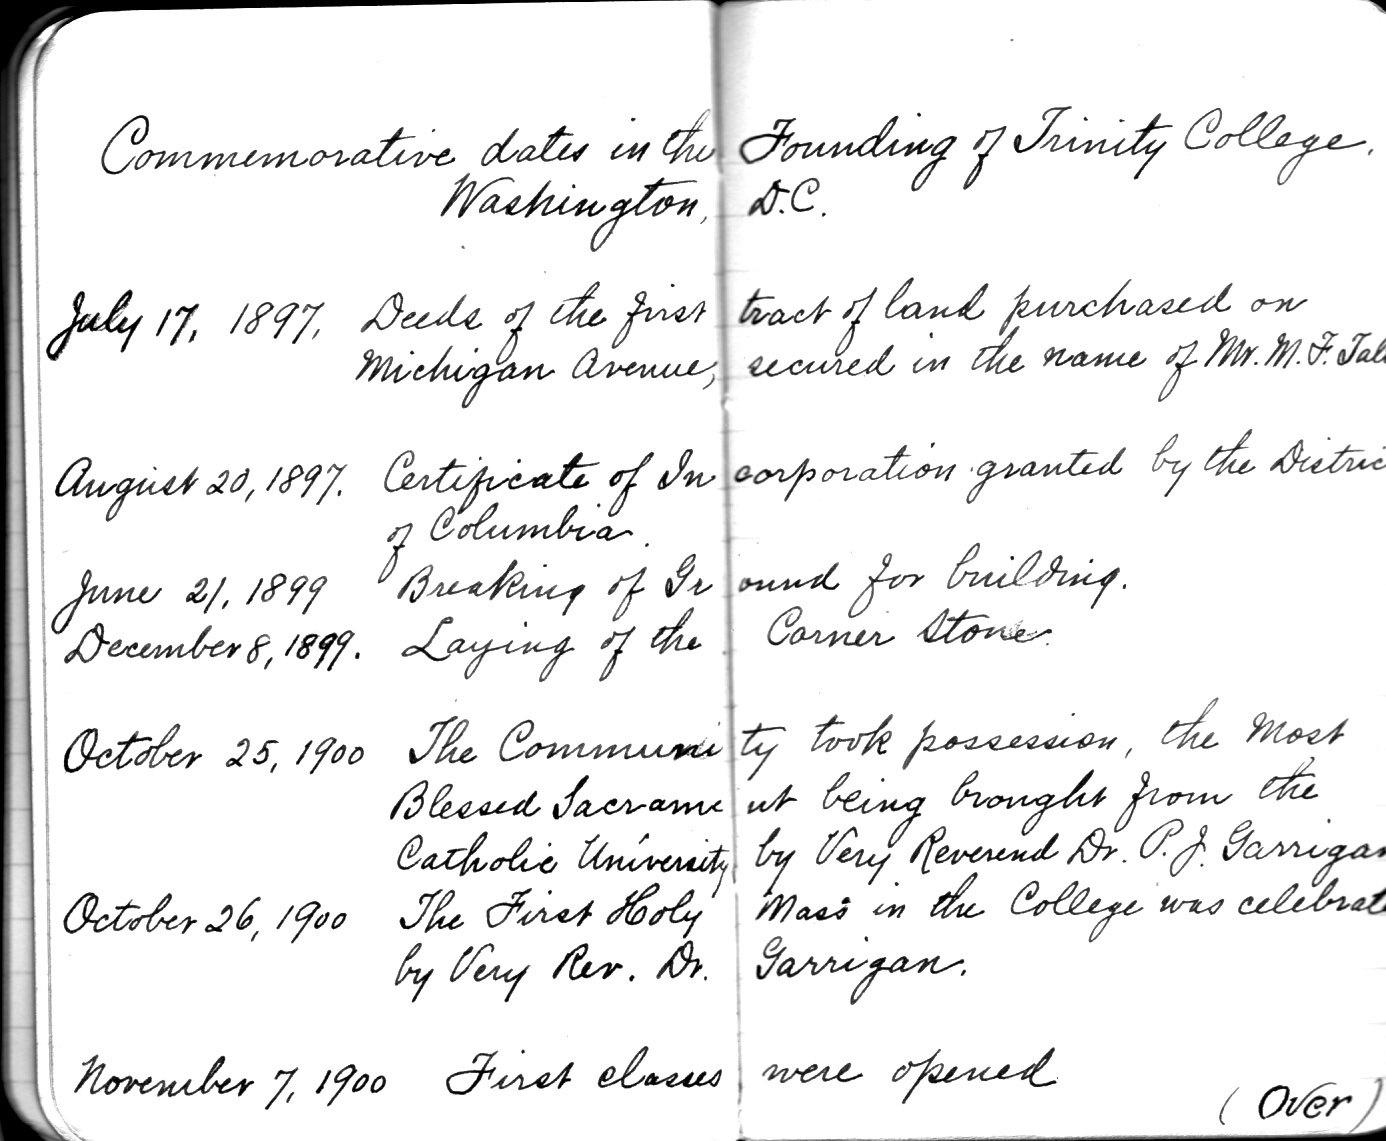 Commemorative dates in the Founding of Trinity College.
Washington, D.C.
July 17, 1897. Deeds of the first tract of land purchased on
Michigan Avenue, secured in the name of Mr. M. F. Tal
August 20, 1897. Certificate of Incorporation granted by the Distric
of Columbia.
June 21, 1899 Breaking of Ground for building.
December 8, 1899. Laying of the Corner Stone.
October 25, 1900 The Community took possession, the Most
Blessed Sacrament being brought from the
Catholic University by Very Reverend Dr. P. J. Garrigan
October 26, 1900 The First Holy Mass in the College was celebrate
by Very Rev. Dr. Garrigan.
November 7, 1900 First classes were opened
(Over)